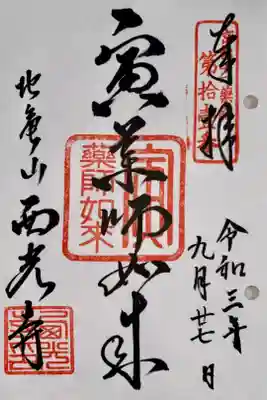 奉拝
第拾壹番
寅薬師如来
薬師如来
地亀山 西光寺
令和三年
九月廿七日